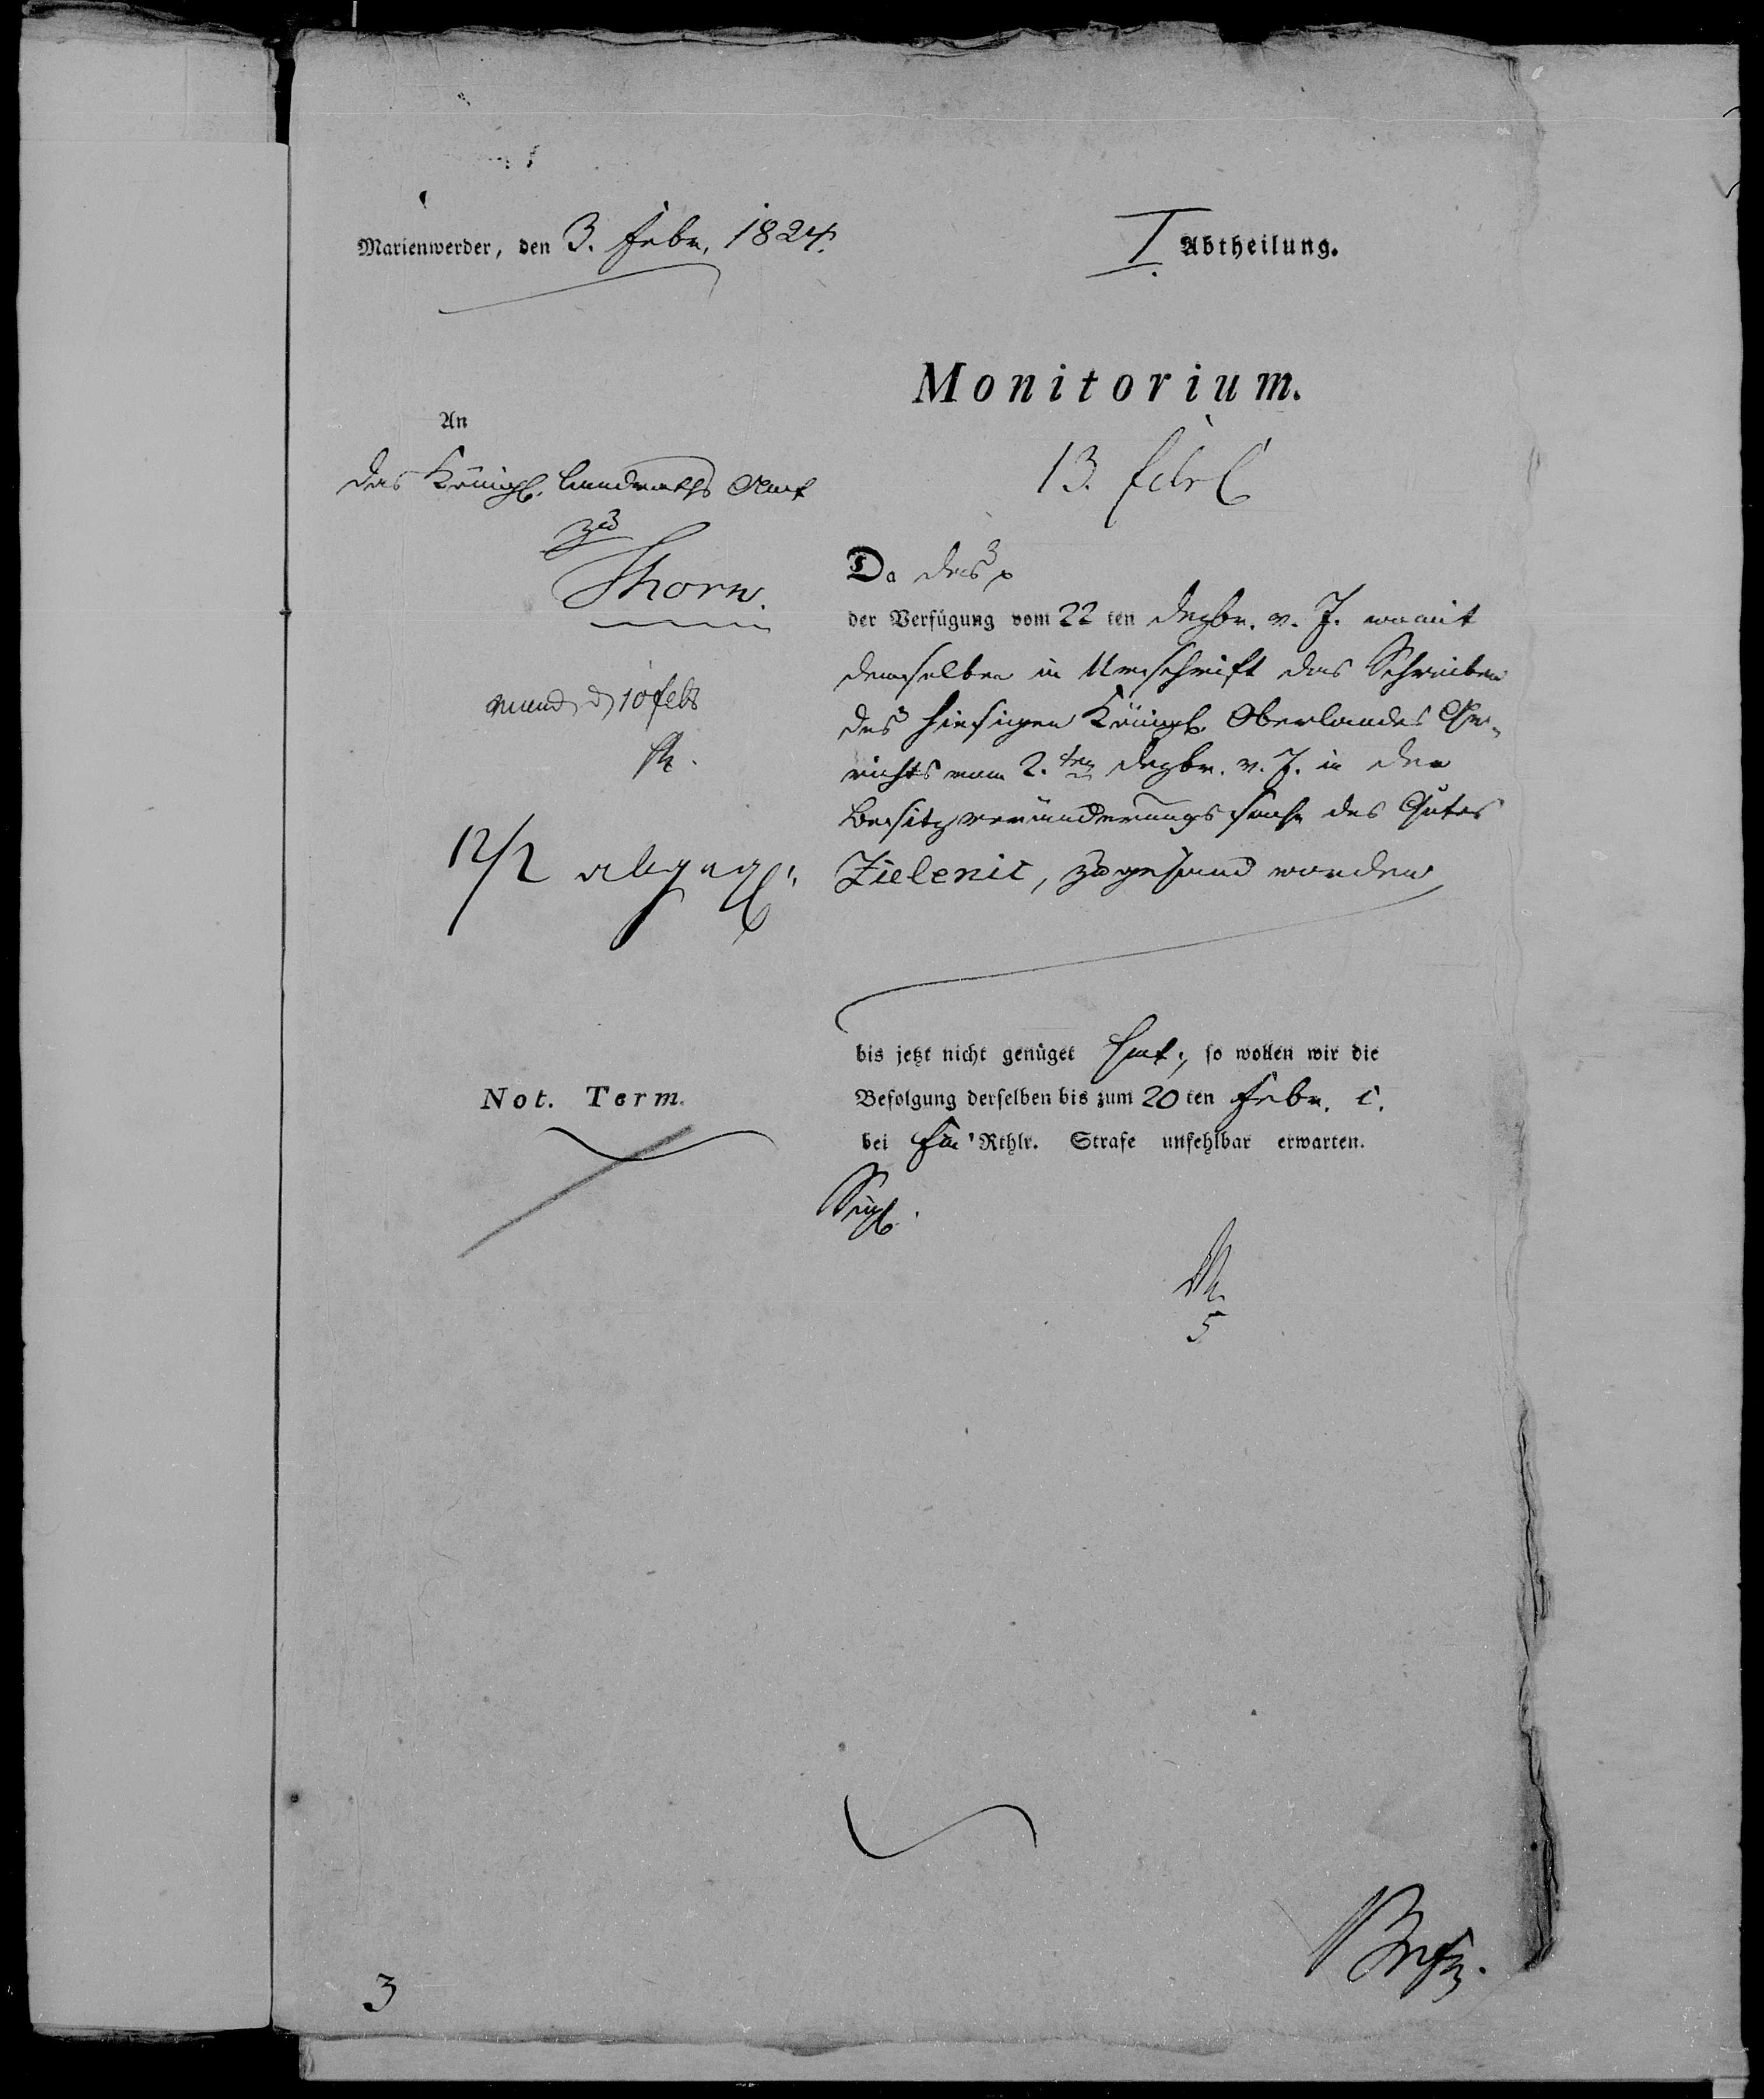 Marienwerder, den 3. Febr. 1824.
I. Abtheilung.
Monitorium.
13. febr
An
das Königl. Landraths Amt
zu
Thorn.
mund d 10 feb
12/2 abgeg.
Da das
der Verfügung vom 22 ten Dezbr. v. J. womit
demselben in Urschrift das Schreiben
des hiesigen Königl. Oberlandes Ge-
richts vom 2.ten Dezbr. v. J. in der
Besitzveränderungs Sache des Gutes
Zielenic, zugesand worden
bis jetzt nicht genüget hat, so wollen wir die
Befolgung derselben bis zum 20 ten Febr. c.
bei Ein Rthlr. Strafe unfehlbar erwarten.
Not. Term.
5
3